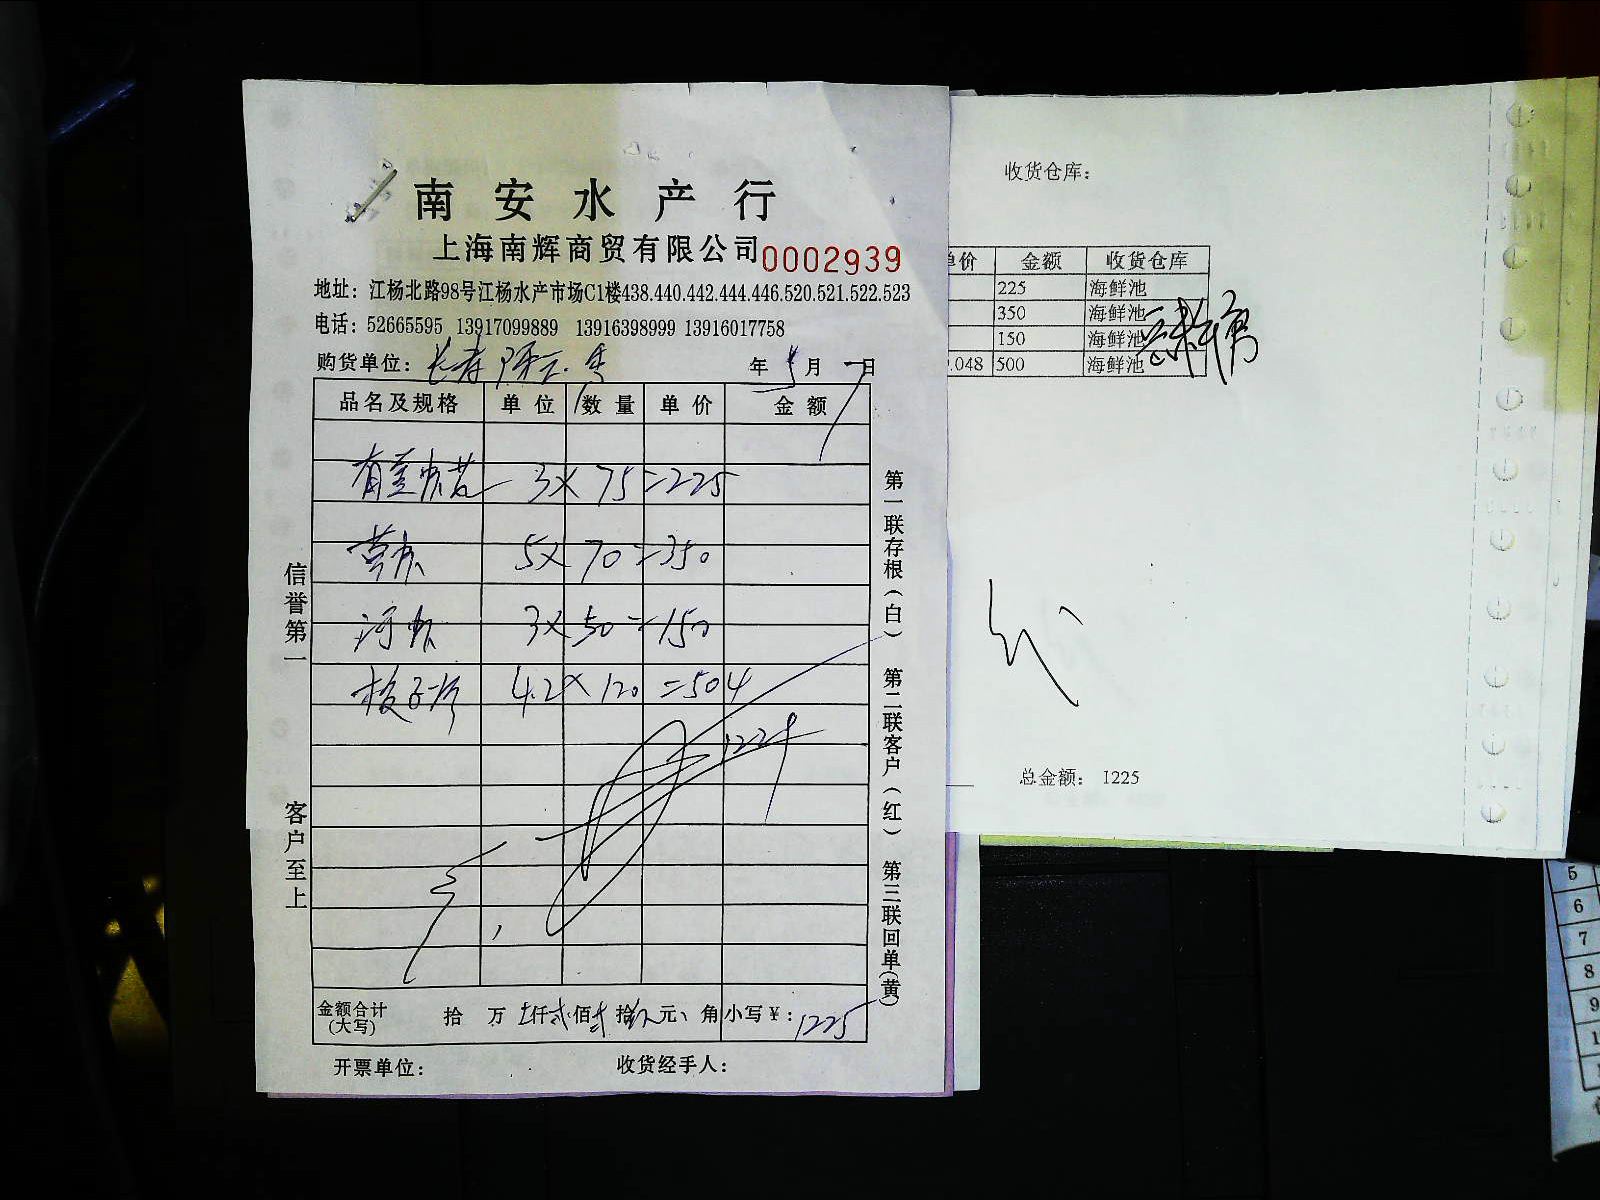 南安水产行
上海南辉商贸有限公司 0002939
地址：江杨北路98号江杨水产市场C1楼438.440.442.444.446.520.521.522.523
电话：52665595 13917099889 13916398999 13916017758
购货单位：长寿 年 5 月 7 日
品名及规格 单位 数量 单价 金额
3×75=225
草虾 5×70=350
河虾 3×50=150
梭子 4.2×120=504
1229
金额合计(大写) 拾 万 仟贰佰贰拾 元 角 小写￥：1225
开票单位： 收货经手人：
信誉第一
客户至上
第一联存根(白) 第二联客户(红) 第三联回单(黄)
收货仓库：
单价 金额 收货仓库
225 海鲜池
350 海鲜池
150 海鲜池
.048 500 海鲜池
总金额： 1225
5
6
7
8
9